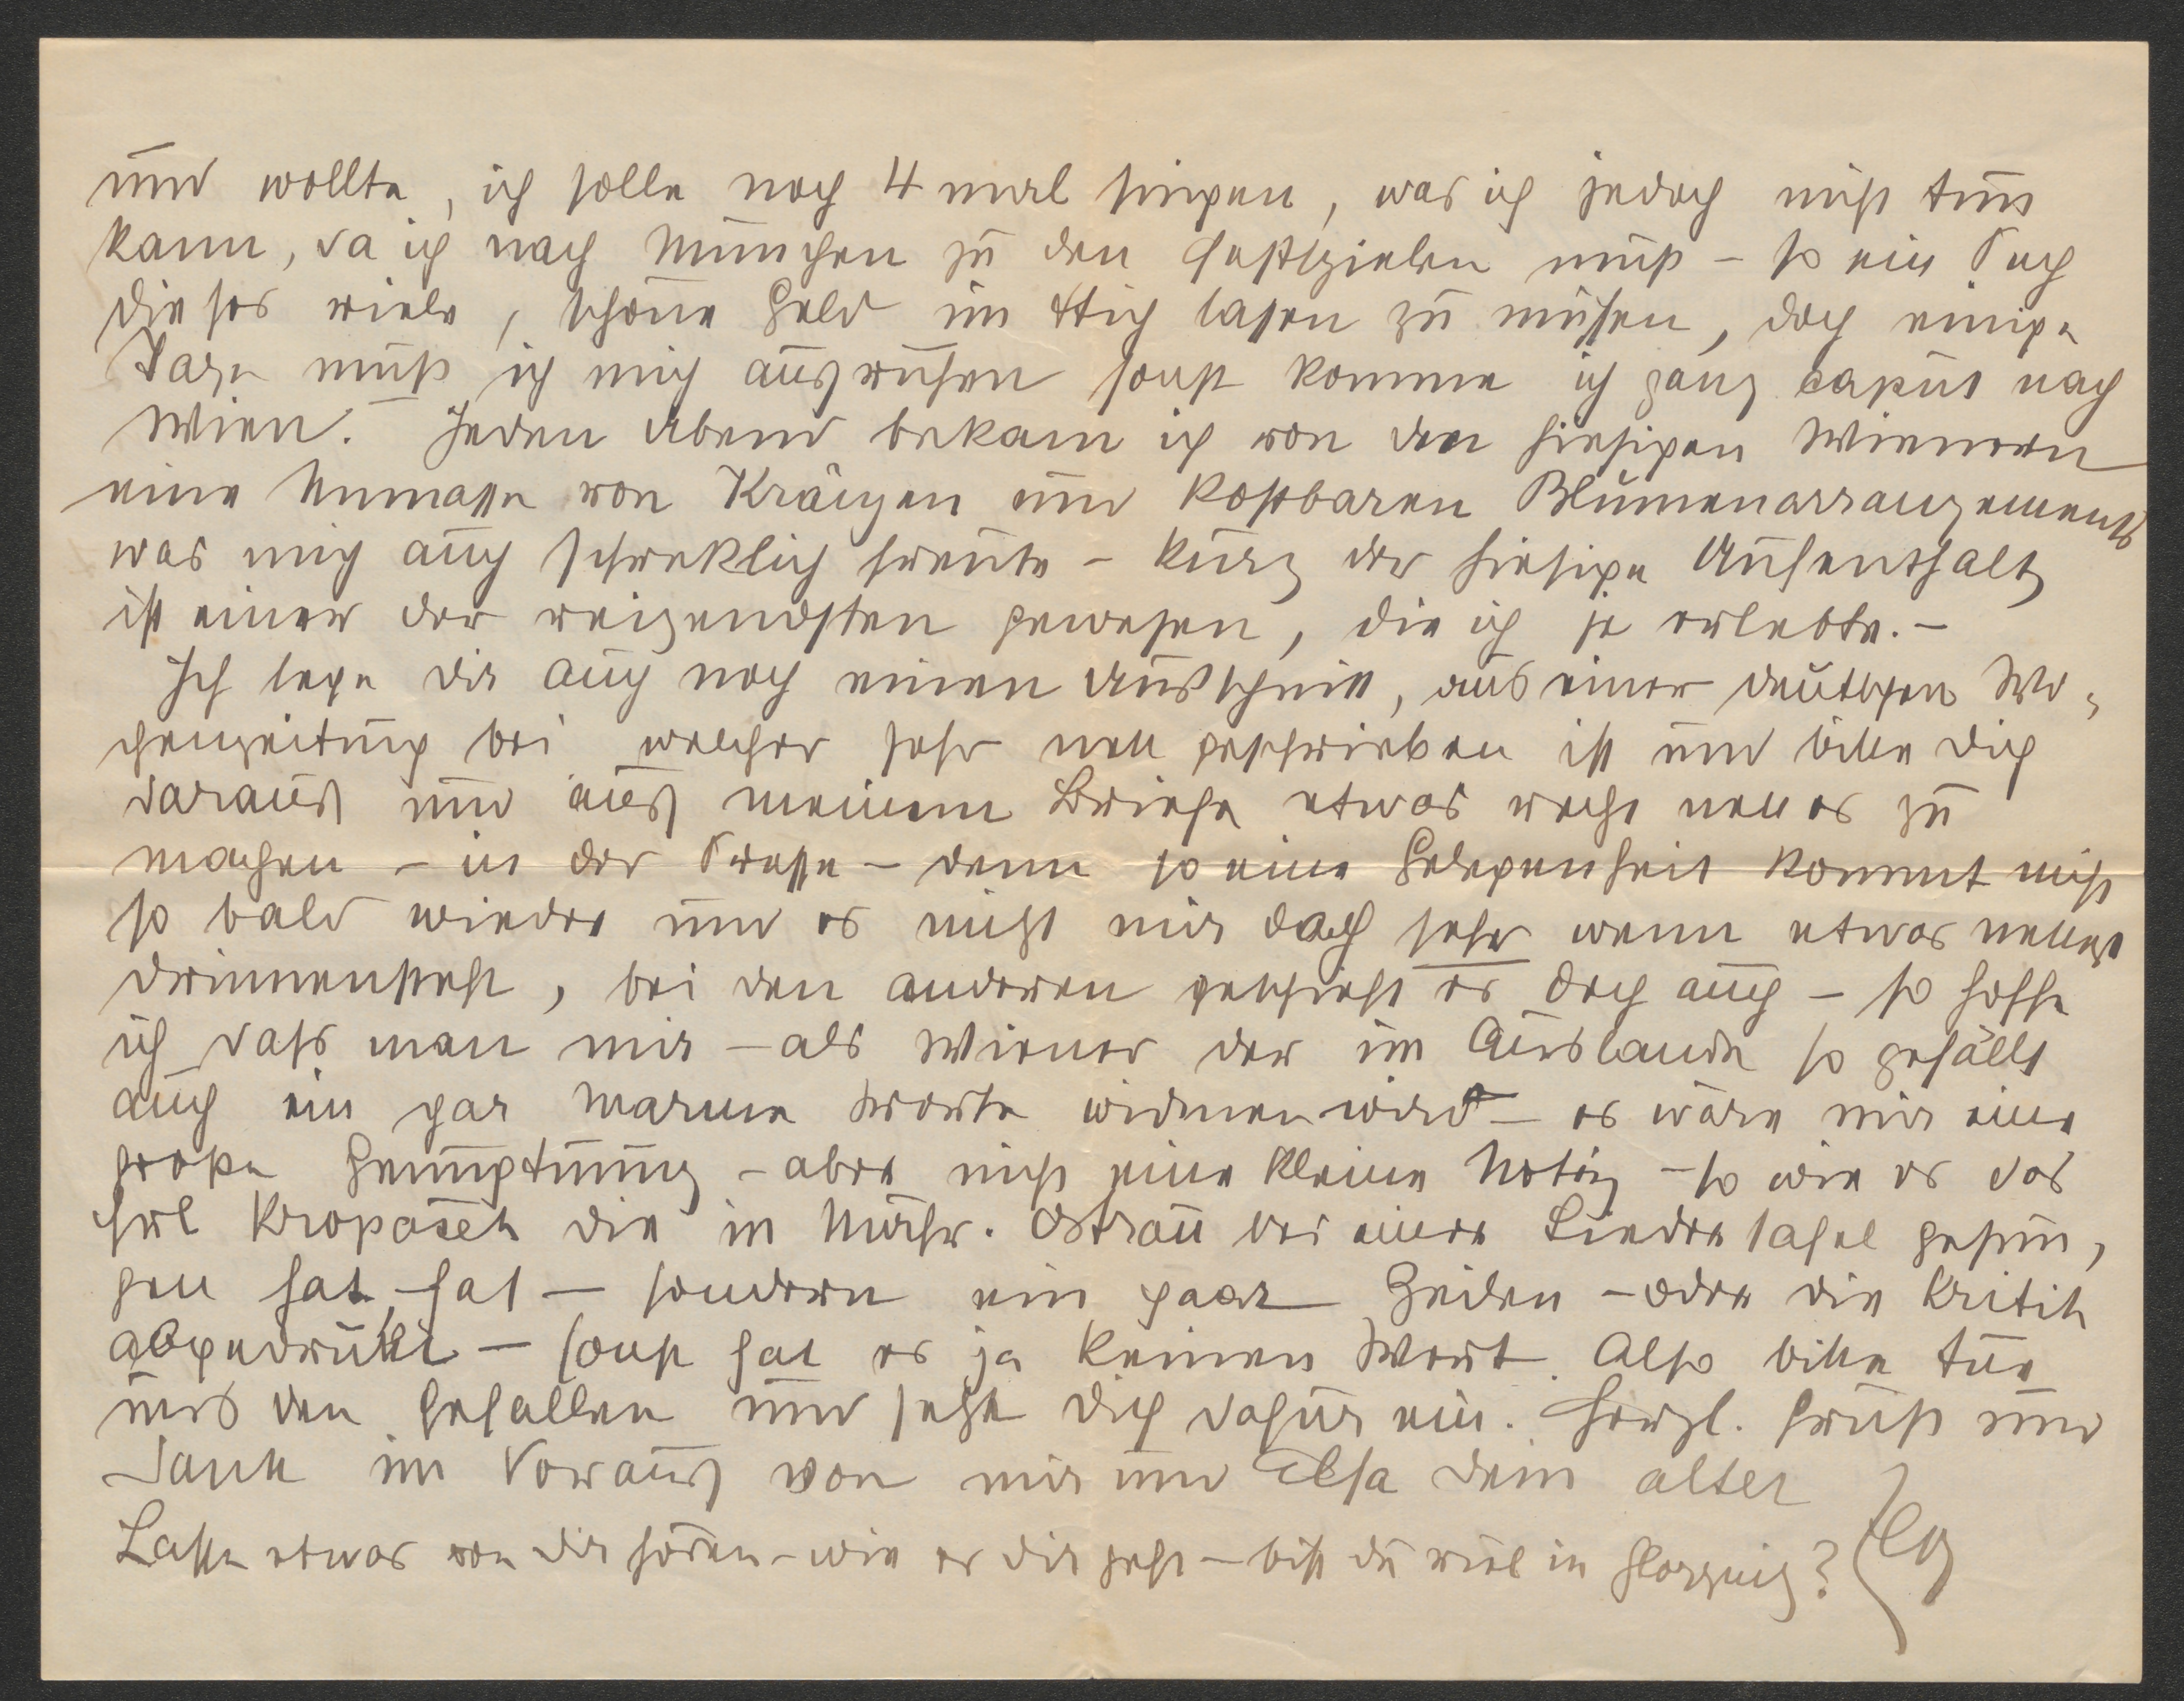 und wollte, ich solle noch 4 mal singen, was ich jedoch nicht tun
kann, da ich nach München zu den Festspielen muß – so ein Pech
dieses viele, schöne Geld im Stich lasen zu müssen, doch einige
Tage muß ich mich ausruhen sonst komme ich ganz caput nach
Wien. – Jeden Abend bekam ich von den hiesigen Wienern
eine Unmasse von Kränzen und kostbaren Blumenarrangements
was mich auch schreklich freute – kurz der hiesige Aufenthalt
ist einer der reizendsten gewesen, die ich je erlebte. –
Ich lege dir auch noch einen Ausschnitt, aus einer deutschen Wo-
chenzeitung bei welcher sehr nett geschrieben ist und bitte dich
daraus und aus meinem Briefe etwas recht nettes zu
machen – in der Presse – denn so eine Gelegenheit kommt nicht
so bald wieder und es nützt mir doch sehr wenn etwas nettes
drinnensteht, bei den anderen geschieht es doch auch – so hoffe
ich dass man mir – als Wiener der im Auslande so gefällt
auch ein par warme Worte widmen wird – es wäre mir eine
große Genugtuung – aber nicht eine kleine Notiz – so wie es das
Frl Kropaček die in Mähr. Ostrau bei einer Liedertafel gesun-
gen hat, hat – sondern ein paar Zeilen – oder die Kritik
abgedrukt – sonst hat es ja keinen Wert. Also bitte tue
uns den Gefallen und setze dich dafür ein. Herzl. Gruß und
Dank im Voraus von mir und Elsa dein alter
Lasse etwas von dir hören – wie es dir geht – bist du viel in Gloggnitz?